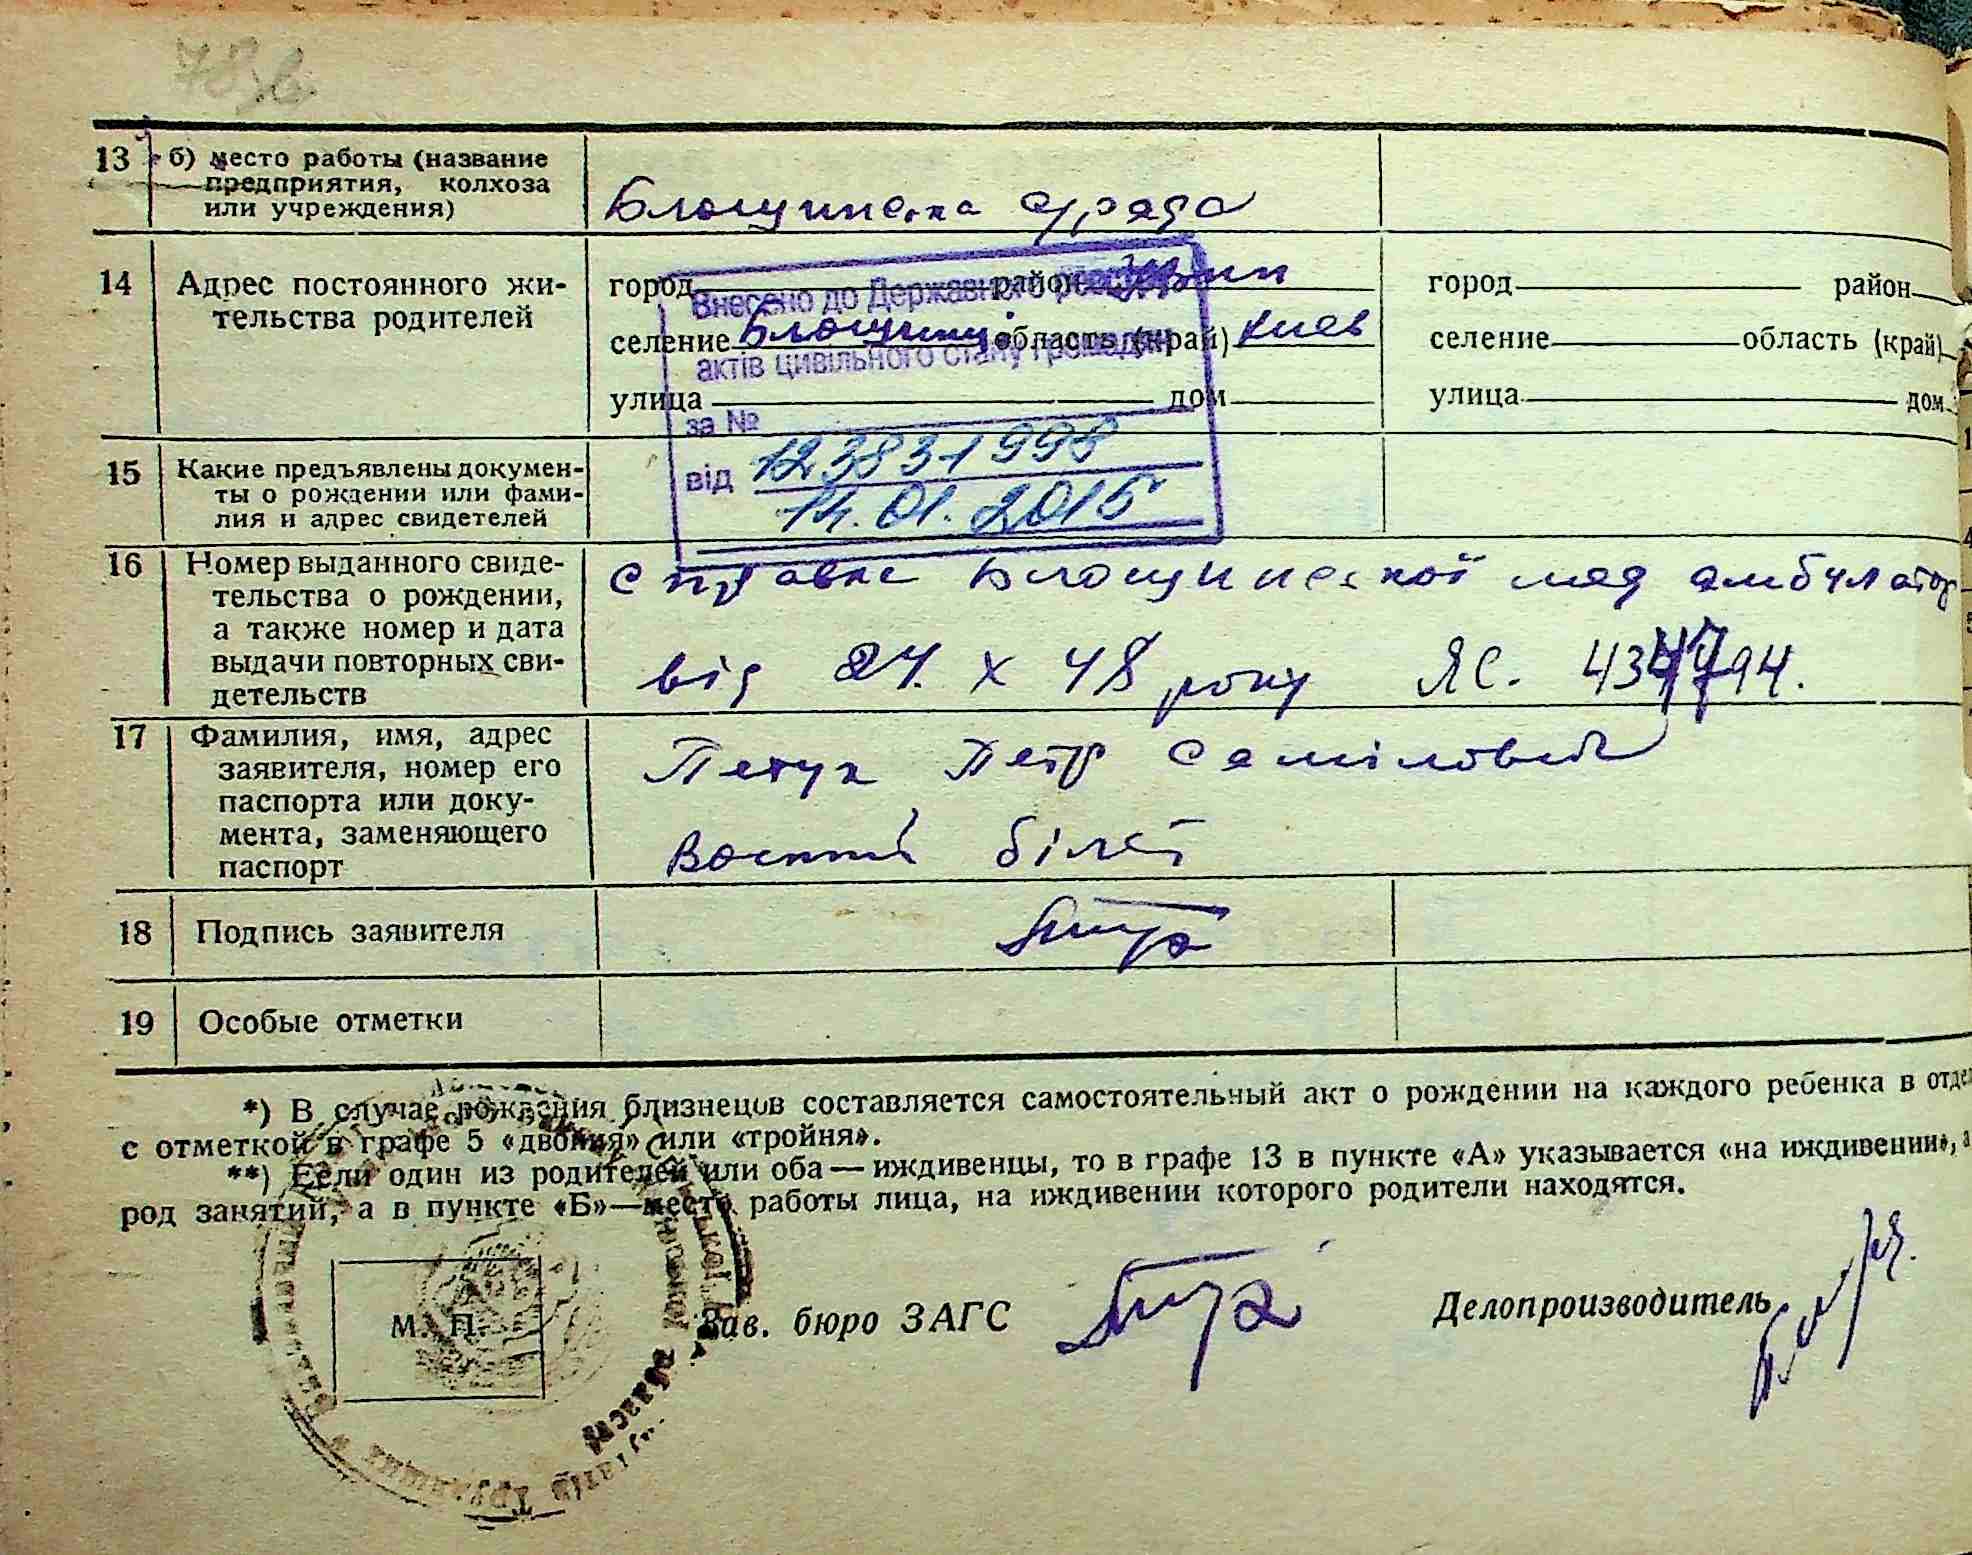 13 б) место работы (название
предприятия, колхоза
или учреждения)
Блощинська с/рада
14 Адрес постоянного жи-
тельства родителей
город район
селение Блощинці область (край) Киев
улица дом
город район
селение область (край)
улица дом
Внесено до Державного реєстру
актів цивільного стану громадян
за № 123831998
від 14.01.2015
15 Какие предъявлены докумен-
ты о рождении или фами-
лия и адрес свидетелей
16 Номер выданного свиде-
тельства о рождении,
а также номер и дата
выдачи повторных сви-
детельств
Справка Блощинської мед амбулатор
від 24. X 48 року ЯС.
17 Фамилия, имя, адрес
заявителя, номер его
паспорта или доку-
мента, заменяющего
паспорт
Петр
Воєнний білет
18 Подпись заявителя
19 Особые отметки
*) В случае рождения близнецов составляется самостоятельный акт о рождении на каждого ребенка в отде
с отметкой в графе 5 «двойня» или «тройня».
**) Если один из родителей или оба — иждивенцы, то в графе 13 в пункте «А» указывается «на иждивении», а
род занятий, а в пункте «Б»—место работы лица, на иждивении которого родители находятся.
М. П.
Зав. бюро ЗАГС
Делопроизводитель